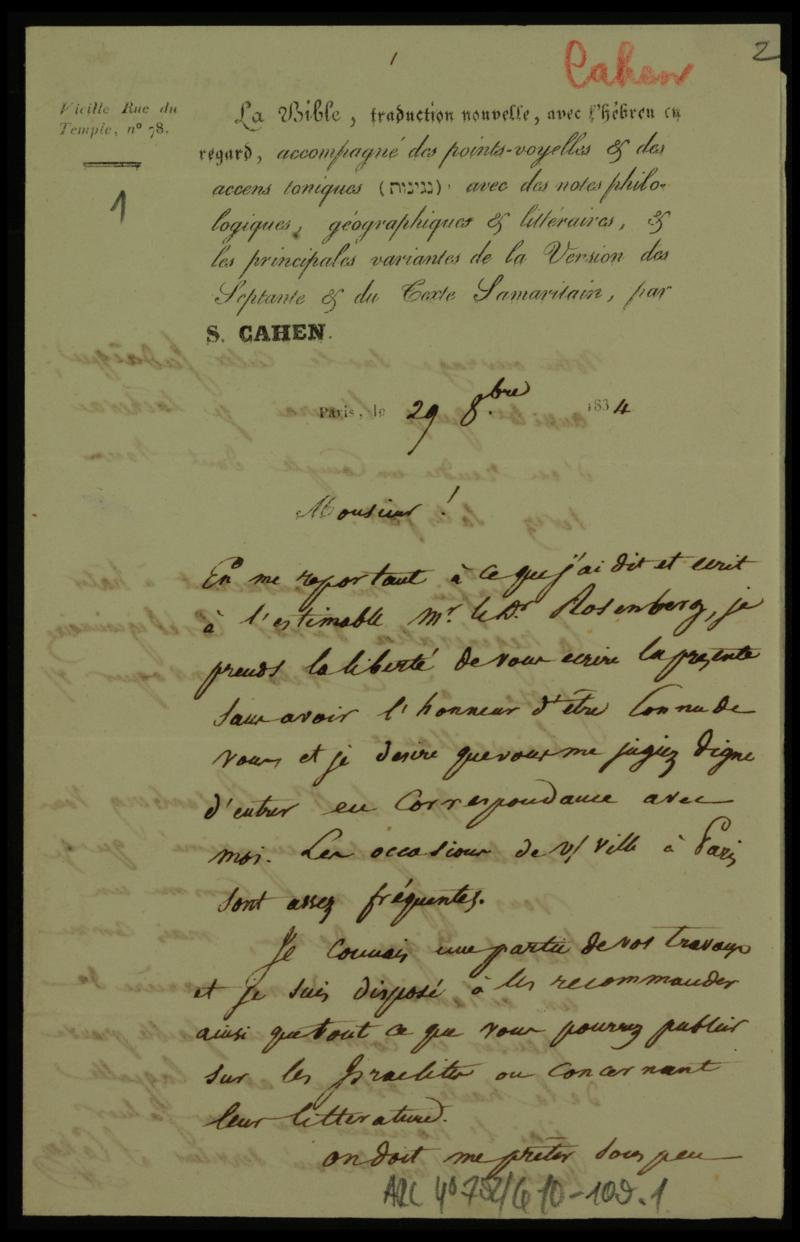 Cahen
2
Vieille Rue du
Temple, nº 78.
1
La Bible, traduction nouvelle, avec l'hébreu en
regard, accompagné des points-voyelles & des
accens toniques (נגינות) avec des notes philo-
logiques, géographiques & littéraires, &
les principales variantes de la Version des
Septante & du Texte Samaritain, par
S. CAHEN.
Paris, le 29 8.bre 1834
Monsieur !
En me reportant à ce que j'ai dit et ecrit
à l'estimable Mr. le Dr Rosenberg, je
prends la liberté de vous ecrire la presente
sans avoir l'honneur d'être connu de
vous et je desire que vous me jugiez digne
d'entrer en correspondance avec
moi. Les occasions de v/ ville à Paris
sont assez fréquentes.
Je connais une partie de vos travaux
et je suis disposé à les recommander
ainsi que tout ce que vous pourrez publier
sur les Israelites ou concernant
leur litterature.
on doit me prêter sous peu
ARC 4º 792/G 10-109.1